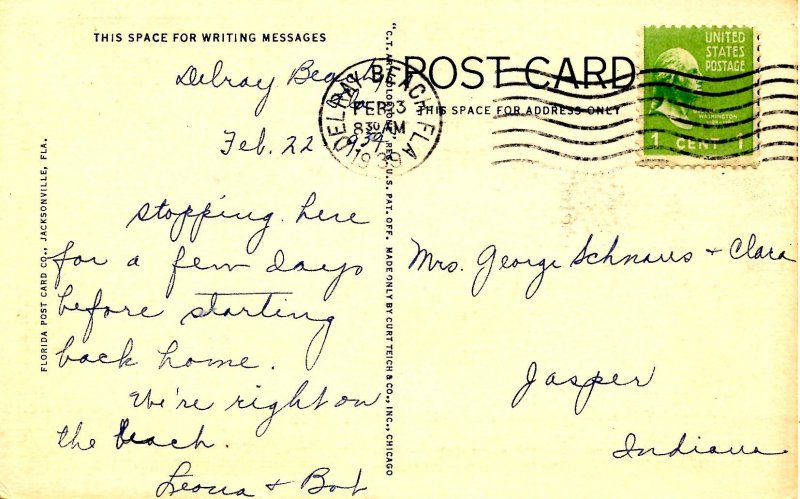 THIS SPACE FOR WRITING MESSAGES
Delray Beach,
Fla.
Feb. 22 1939.
stopping here
for a few days
before starting
back home.
We're right on
the beach.
Leona + Bob
FLORIDA POST CARD CO., JACKSONVILLE, FLA.
"C.T. ART-COLORTONE" REG. U.S. PAT. OFF. MADE ONLY BY CURT TEICH & CO., INC., CHICAGO
POST CARD
THIS SPACE FOR ADDRESS ONLY
DELRAY BEACH, FLA
FEB 23
8 30 AM
1939
UNITED
STATES
POSTAGE
WASHINGTON
1 CENT 1
Mrs. George Schnaus + Clara
Jasper
Indiana